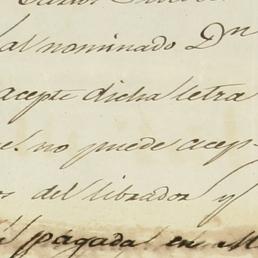 al nominado Dn
acepte dicha letra
no puede acep-
del librador y
pagada en M